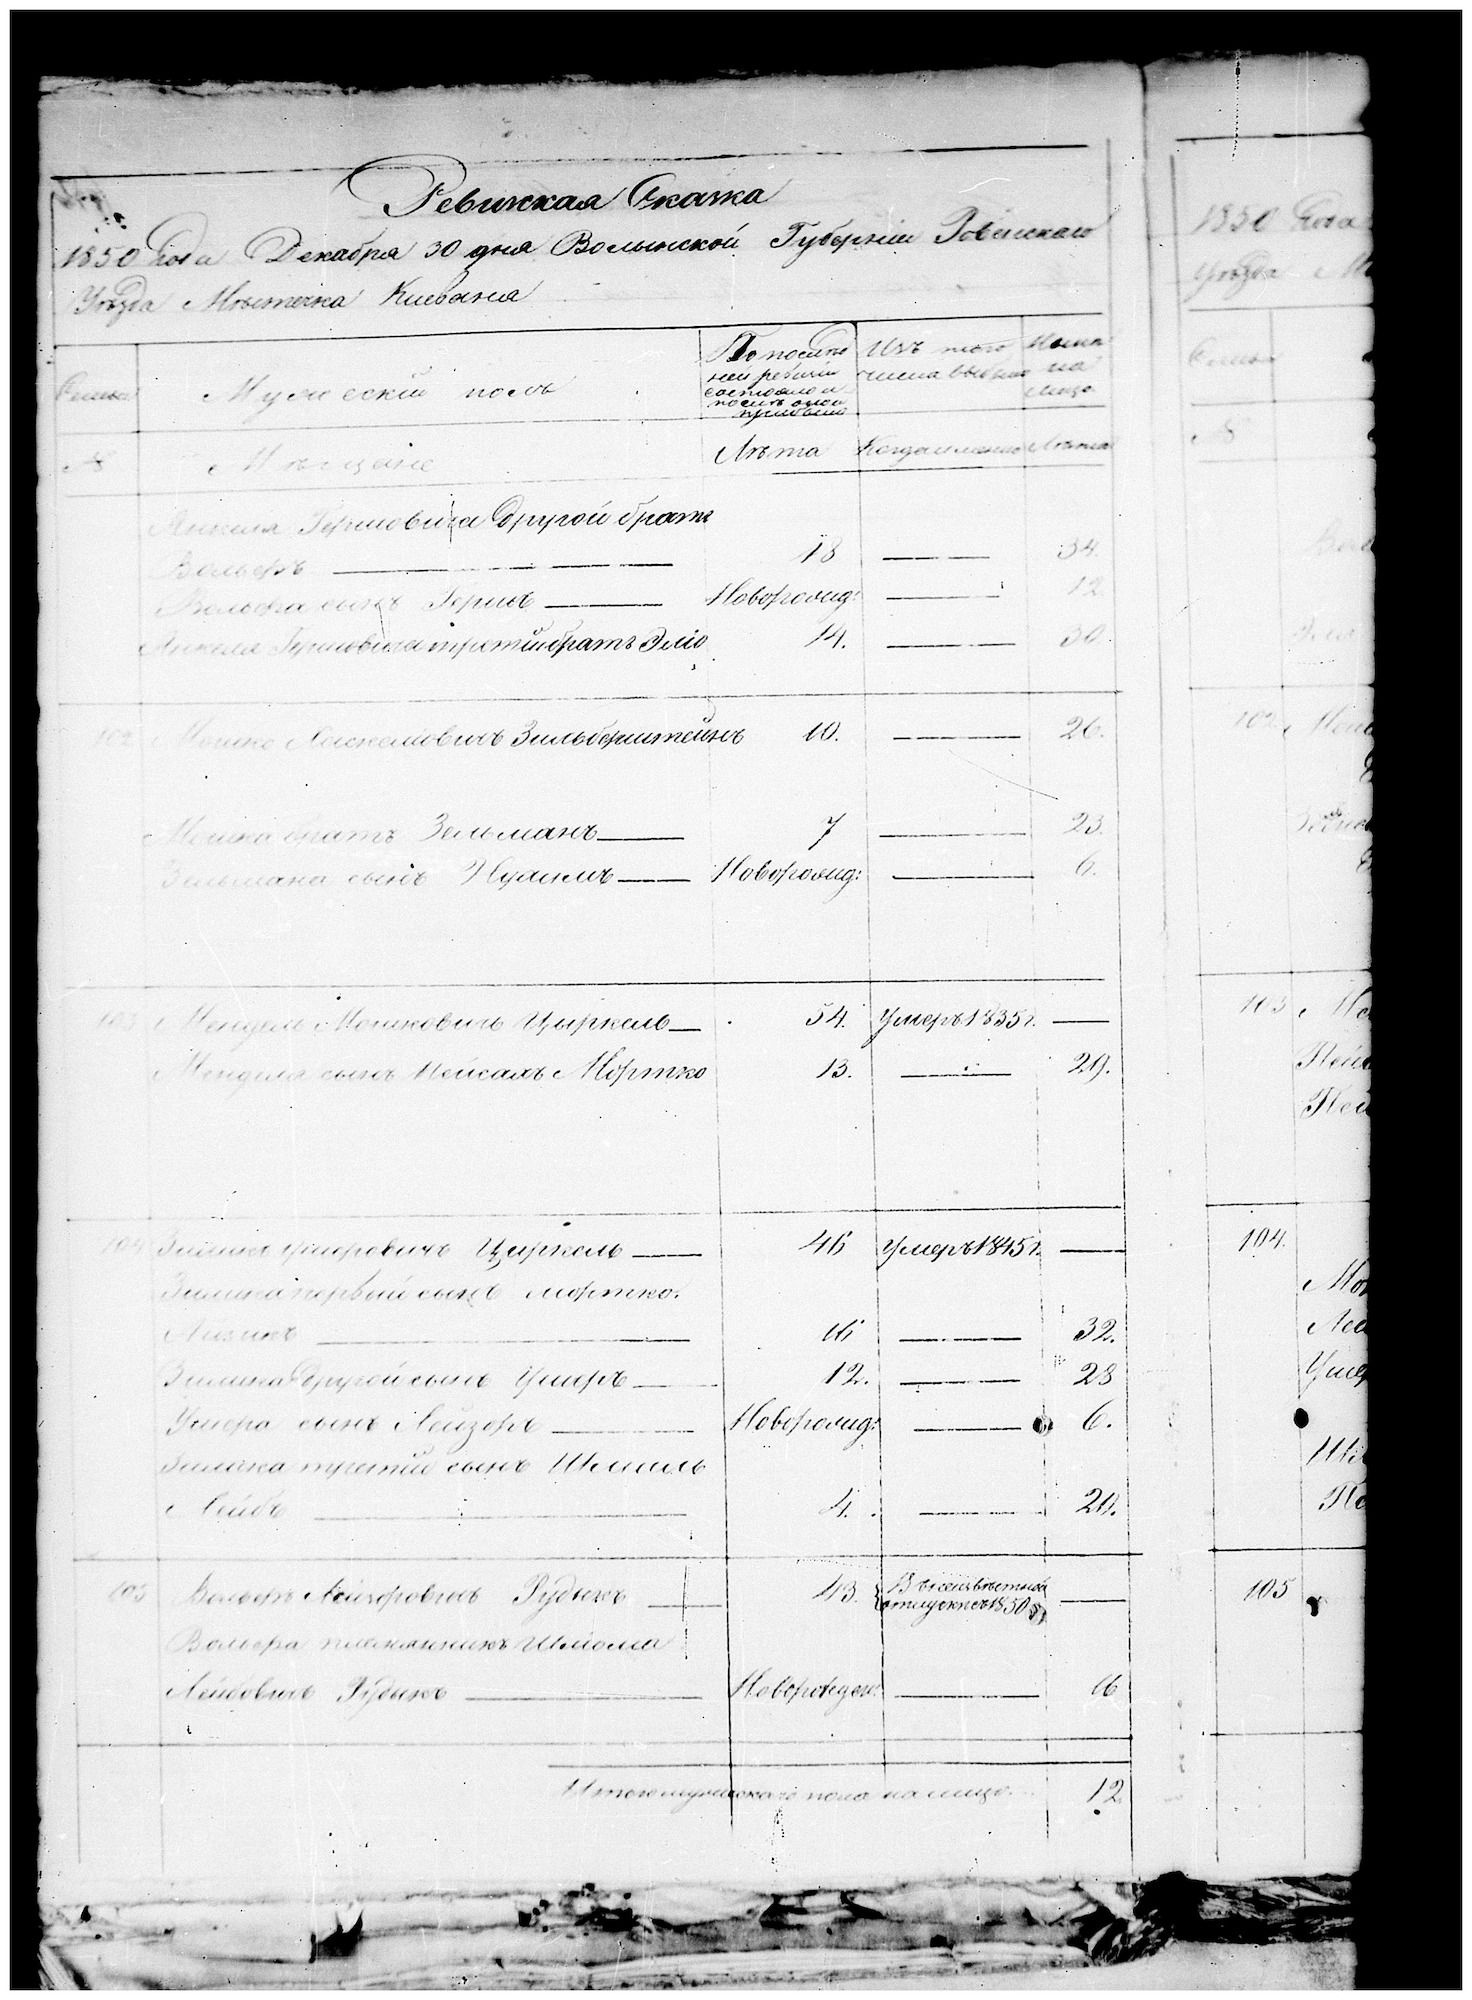 Ревижская Сказка
1850 Года Декабря 30 дня Волынской Губерніи Ровенскаго
Уѣзда Мѣстечка Клеваня
Семьи
Мужескій полъ
По послѣд
ней ревизіи
состояло и
послѣ оной
прибыло
Изъ того
числа выбыло
Нынѣ
на
лицо
№
Мѣщане
Лѣта
Когда именно
Лѣта
Анкеля Гершовича другой братъ
Вольфъ 18 34.
Вольфа сынъ Гершъ Новорожд: 12
Анкеля Гершовича третій братъ Эліо 14. 30
102 Мошко Хаскелювичъ Зильберштейнъ 10. 26.
Мошка братъ Зельманъ 7 23.
Зельмана сынъ Нухимъ Новорожд: 6.
103 Мендель Мошковичъ Циркель 54. Умеръ 1835 г.
Менделя сынъ Пейсахъ Мортко 13. 29.
104 Зимель Умеровичъ Циркель 46 Умеръ 1845 г.
первый сынъ Мортко
Айзикъ 16 32.
другой сынъ Ушеръ 12. 28
Ушера сынъ Лейзоръ Новорожд: 6.
третій сынъ Шмиль
Лейбъ 4. 20.
105 Вольфъ Лейзоровичъ Рудыкъ 43. Въ безвѣстной
отлучкѣ съ 1850 г.
Вольфа племянникъ Шлома
Лейбовичъ Рудыкъ Новорожден: 16
Итого мужескаго пола на лицо 12
1850 Года
Уѣзда М
Семьи
№
102
103
Пей
104.
Мо
Уше
105